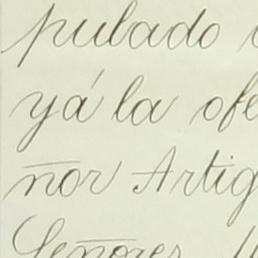 pulado
yá la ofe
ñor Artig
Señores